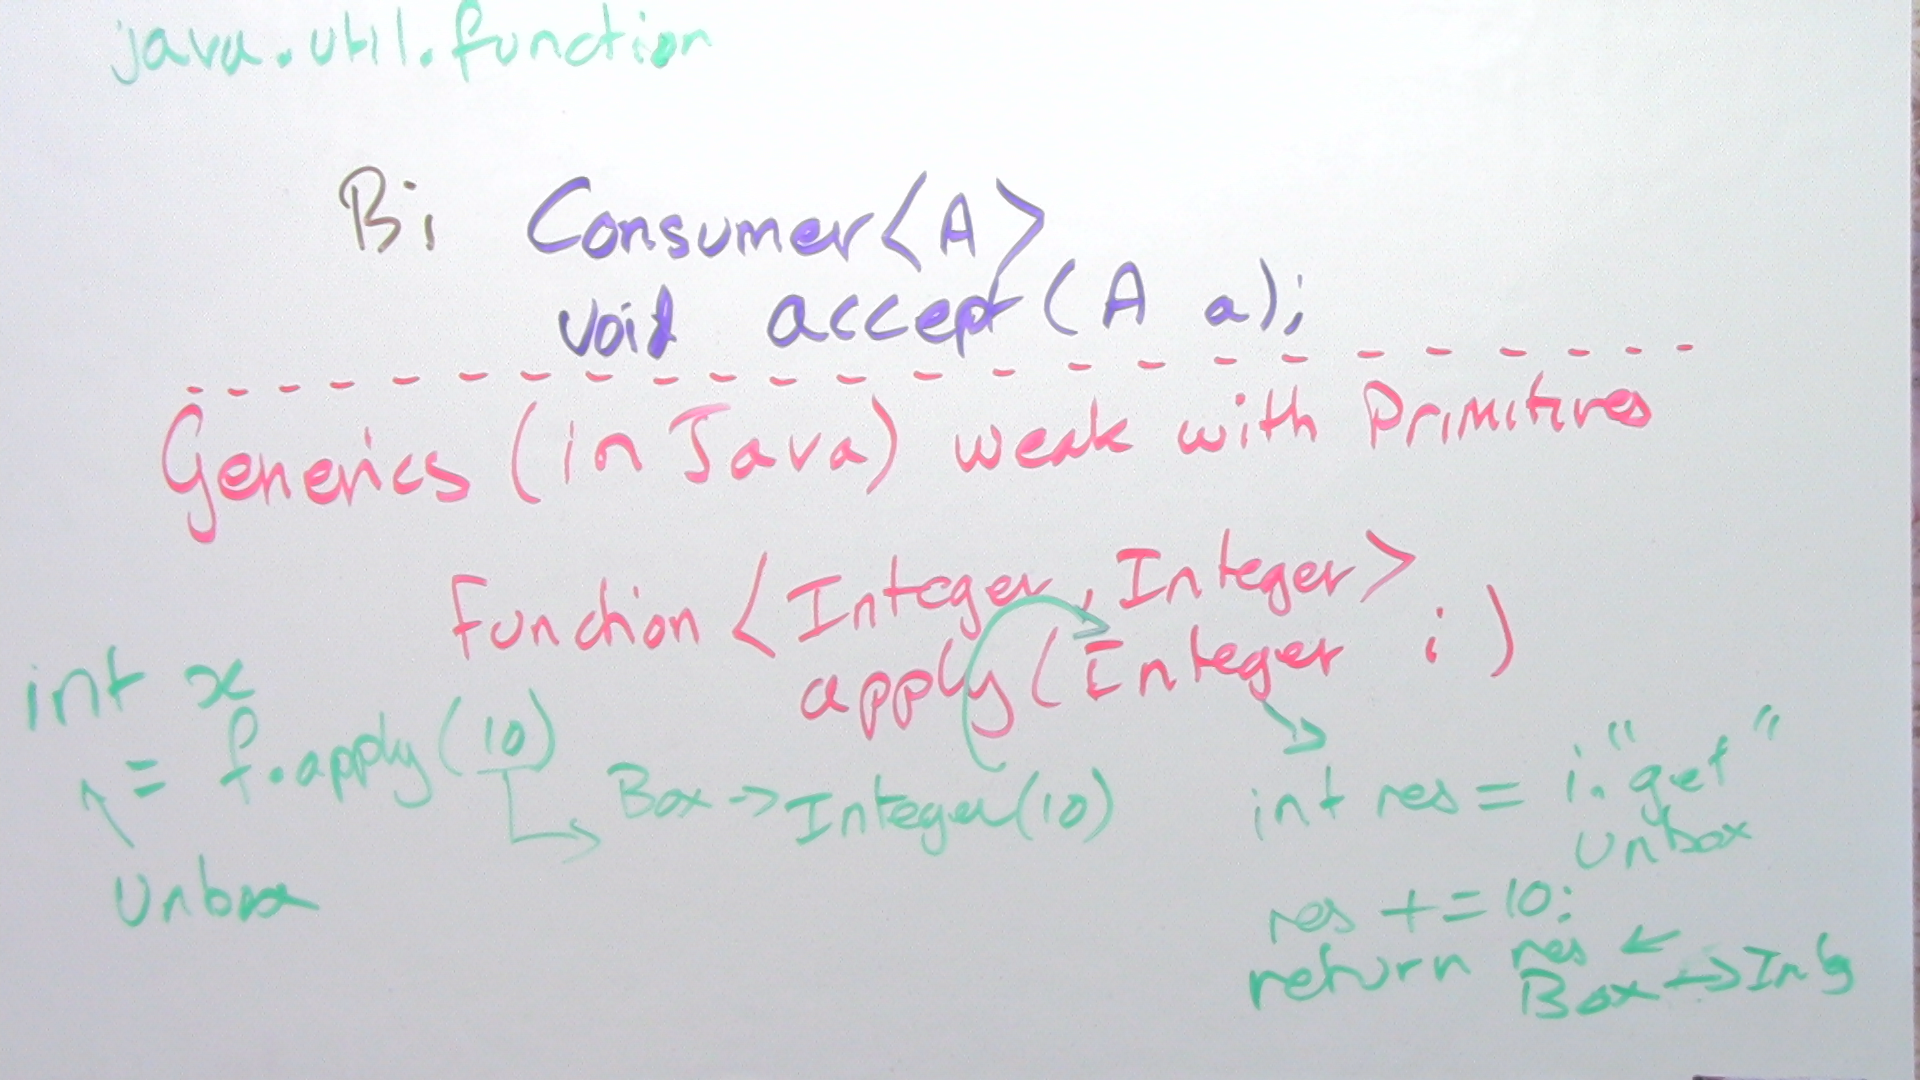 java.util.function
Bi Consumer<A>
void accept(A a);
Generics (in Java) weak with Primitives
Function <Integer, Integer>
apply(Integer i)
int x
= f.apply(10)
Box -> Integer(10)
Unbox
int res = i."get"
unbox
res += 10;
return res
Box -> Intg